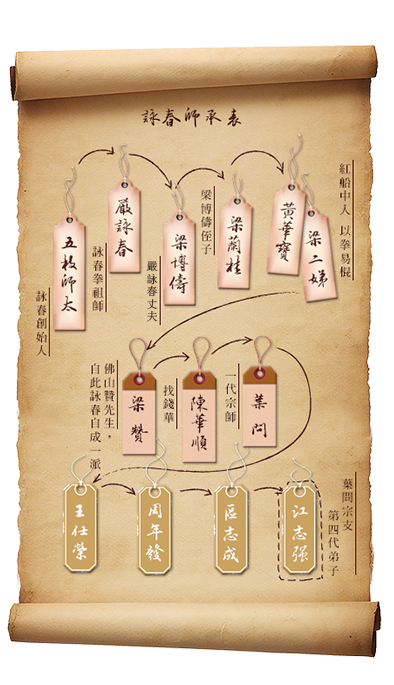 詠春師承表
五枚師太
詠春創始人
嚴詠春
詠春拳祖師
梁博儔
嚴詠春丈夫
梁蘭桂
梁博儔侄子
黃華寶
梁二娣
紅船中人 以拳易棍
梁贊
佛山贊先生，
自此詠春自成一派
陳華順
找錢華
葉問
一代宗師
王仕榮
周年發
區志成
江志强
葉問宗支
第四代弟子